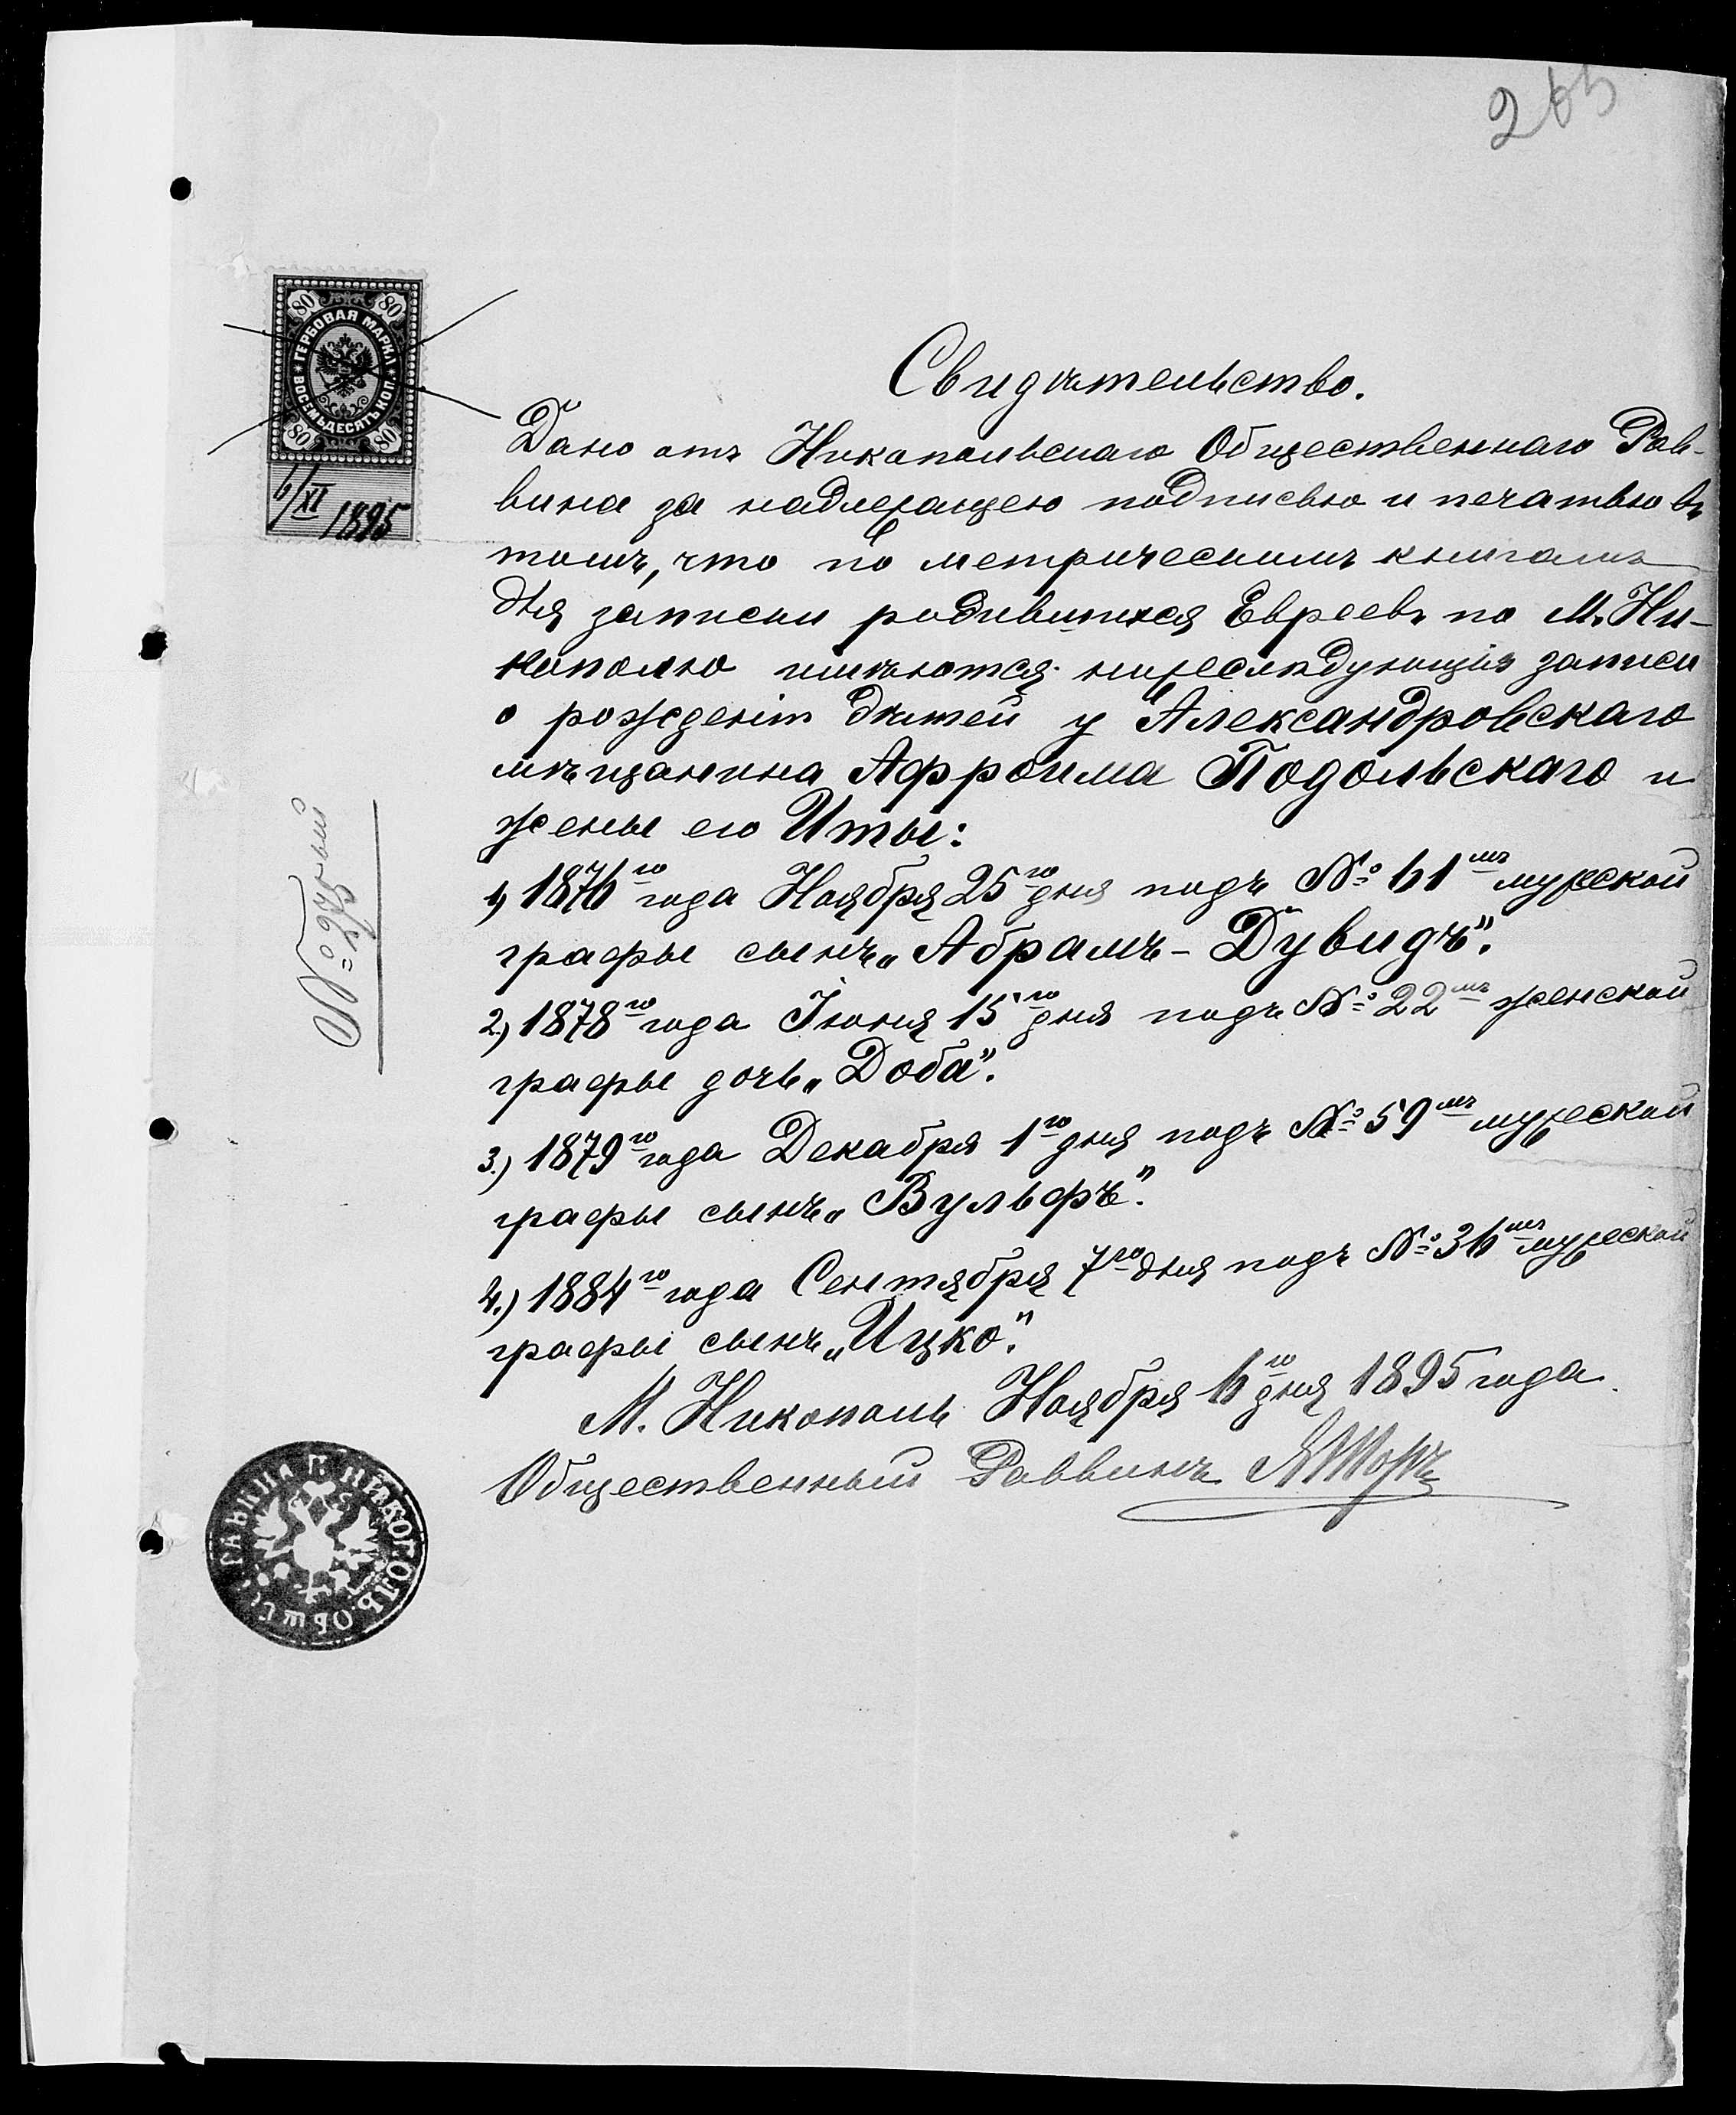 265
80 80
ГЕРБОВАЯ МАРКА
ВОСЕМЬДЕСЯТЬ КОП.
80 80
6/XI 1895
Свидѣтельство.
Дано отъ Никопольскаго Общественнаго Рав-
вина за надлежащею подписью и печатью въ
томъ, что по метрическимъ книгамъ
для записки родившихся Евреевъ по М. Ни-
кополю имѣются нижеслѣдующія записи
о рожденіи дѣтей у Александровскаго
мѣщанина Афроима Подольскаго и
жены его Иты:
1) 1876го года Ноября 25го дня подъ № 61мъ мужской
графы сынъ „Абрамъ-Дувидъ".
2.) 1878го года Іюня 15го дня подъ № 22мъ женской
графы дочь „Доба".
3.) 1879го года Декабря 1го дня подъ № 59мъ мужской
графы сынъ „Вульфъ".
4.) 1884го года Сентября 7го дня подъ № 36мъ мужской
графы сынъ „Ицко".
М. Никополь Ноября 6го дня 1895 года.
Общественный Раввинъ
№ 275
НИКОПОЛЬ. ОБЩЕСТ.